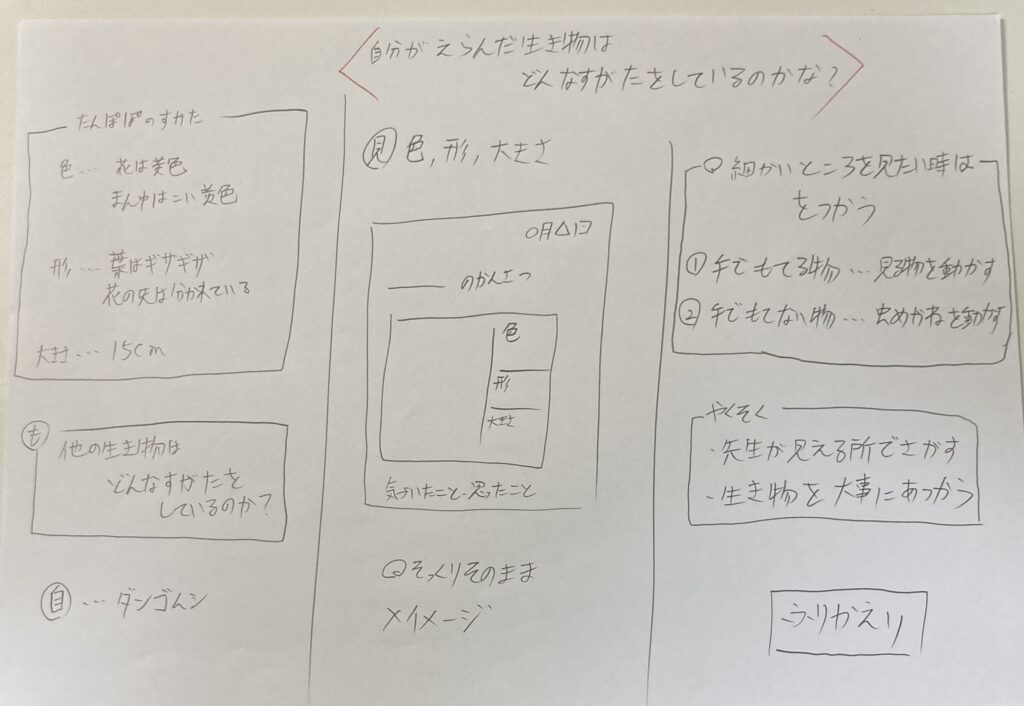 自分がえらんだ生き物は
どんなすがたをしているのかな?
たんぽぽのすがた
色… 花は黄色
まん中はこい黄色
形… 葉はギザギザ
花の先は分かれている
大きさ… 15cm
も
他の生き物は
どんなすがたを
しているのか?
自… ダンゴムシ
見 色,形,大きさ
○月△日
のかんさつ
色
形
大きさ
気づいたこと・思ったこと
○そっくりそのまま
×イメージ
細かいところを見たい時は
をつかう
① 手でもてる物… 見る物を動かす
② 手でもてない物… 虫めがねを動かす
やくそく
・先生が見える所でさがす
・生き物を大事にあつかう
ふりかえり